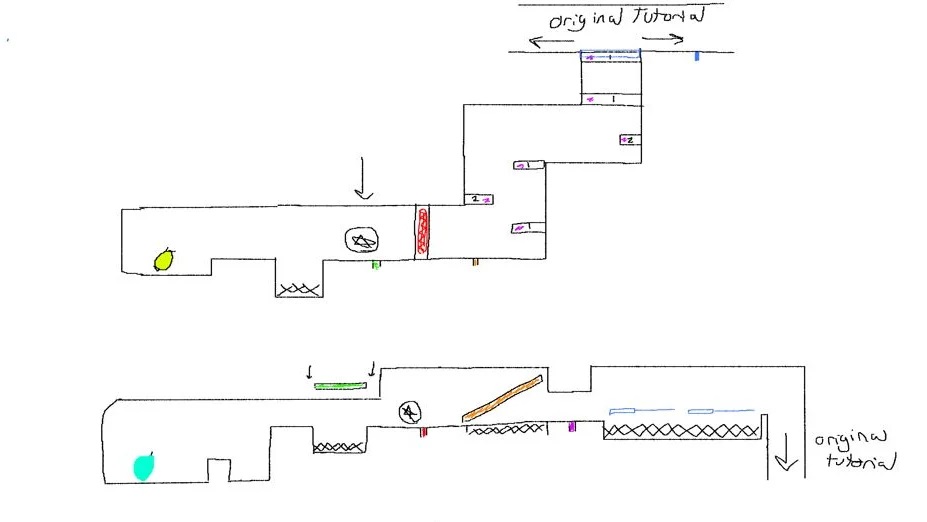 original Tutorial
1
1
2
1
2
1
original
tutorial